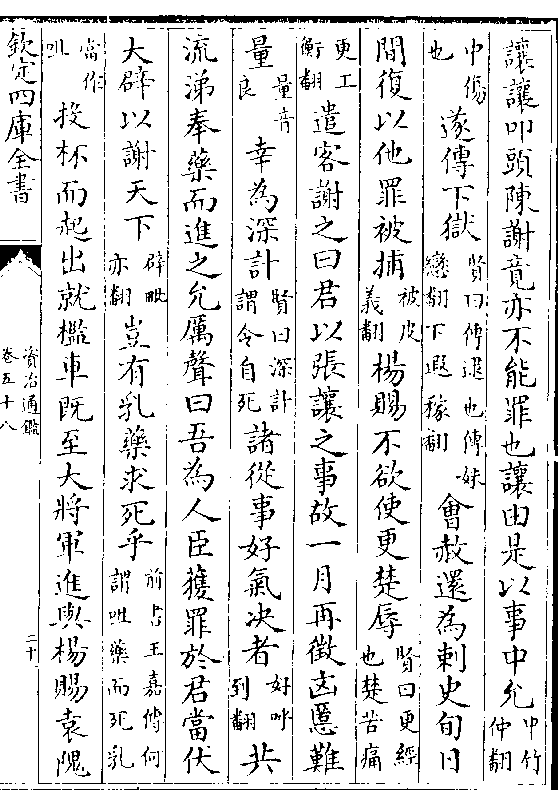 讓讓叩頭陳謝竟亦不能罪也讓由是以事中允中竹仲翻
中傷也遂傳下獄賢曰傳逮也傳株戀翻下遐稼翻會赦還為刺史旬日
間復以他罪被捕被皮義翻楊賜不欲使更楚辱賢曰更經也楚苦痛
更工衡翻遣客謝之曰君以張讓之事故一月再徵凶慝難
量量音良幸為深計賢曰深計謂令自死諸從事好氣决者好呼到翻共
流涕奉藥而進之允厲聲曰吾為人臣獲罪於君當伏
大辟以謝天下辟毗亦翻豈有乳藥求死乎前書王嘉傳何謂咀藥而死乳
當作咀投杯而起出就檻車既至大將軍進與楊賜袁隗
欽定四庫全書
資治通鑑
卷五十八
二十